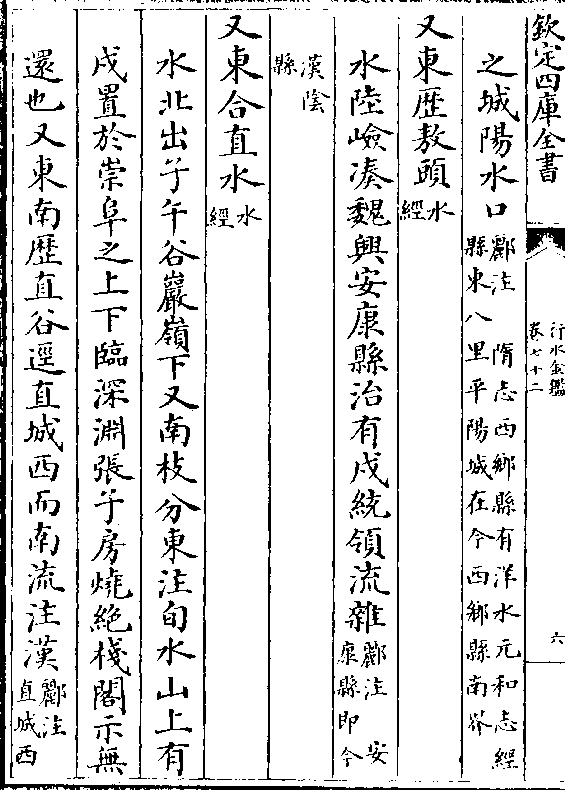 欽定四庫全書
行水金鑑
卷七十二
六
之城陽水口
酈注 隋志西鄉縣有洋水元和志經
縣東八里平陽城在今西鄉縣南界
又東歷敖頭
水
經
水陸嶮湊魏興安康縣治有戍統領流雜
酈注 安
康縣即今
漢陰
縣
又東合直水
水
經
水北出子午谷巖嶺下又南枝分東注旬水山上有
戍置於崇阜之上下臨深淵張子房燒絶棧閣示無
還也又東南歷直谷逕直城西而南流注漢
酈注
直城西